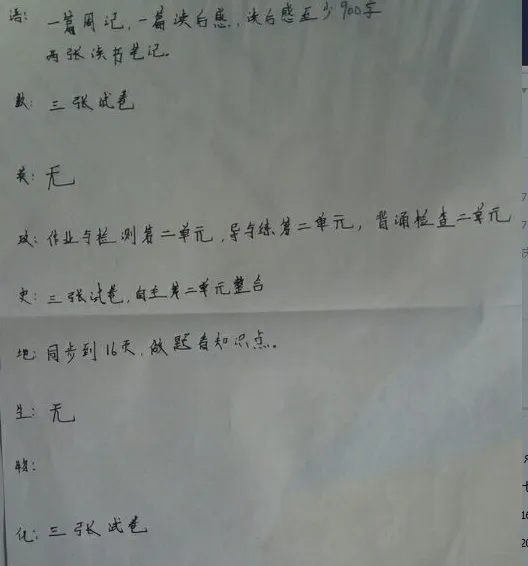 语: 一篇周记, 一篇读后感, 读后感至少900字
两张读书笔记.
数: 三张试卷
英: 无
政: 作业与检测第二单元, 导与练第二单元, 背诵检查二单元
史: 三张试卷, 自主第二单元整合
地: 同步到16天, 做题看知识点。
生: 无
物:
化: 三张试卷
7
7
16
20